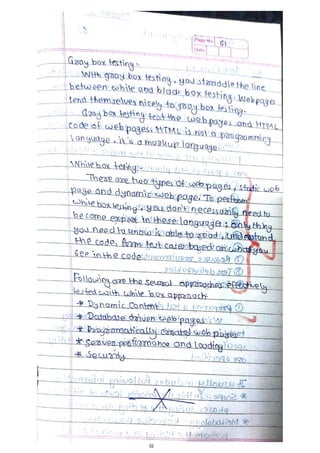 Page No. 61
Date
Gray box testing :-
With gray box testing, you straddle the line
between white and black box testing. Web pages
lend themselves nicely to gray box testing.
Gray box testing test the web pages and HTML
code of web pages. HTML is not a programming
language, it is a markup language.
White box testing:-
There are two types of web pages, static web
page and dynamic web page. To perform
white box testing, you don't necessarily need to
become expert in these languages; only thing
you need to know is able to read, understand
the code, form test cases based on what you
see in the code.
Following are the several approaches effectively
tested with white box approach
* Dynamic Content
* Database driven web pages
* Programmatically created web pages
* Server performance and loading
* Security
52